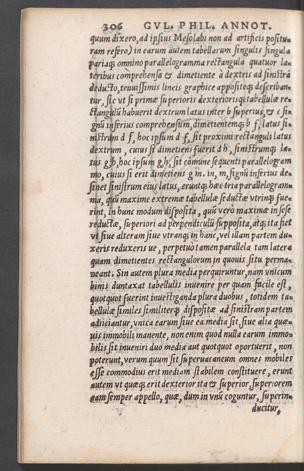 306 GVL. PHIL. ANNOT.
quum dixero, ad ipsius Mesolabi non ad artificis positu-
ram refero) in earum autem tabellarum singulis singula
pariaq; omnino parallelogramma rectangula quatuor la-
teribus comprehensa & dimetiente à dextris ad sinistrā
deducto, tenuissimis lineis graphice appositeq; describan-
tur, sic vt si primæ superioris dexteriorisq; tabellulæ re-
ctanguli habuerit dextrum latus inter b superius, & c si-
gnū inferius comprehensum, dimetientemq; b f, latus si-
nistrum d f, hoc ipsum d f, sit proximi rectanguli latus
dextrum, cuius si dimetiens fuerit d h, sinistrumq; la-
tus g h, hoc ipsum g h, sit cōmune sequenti parallelogram
mo, cuius si erit dimetiens g m. in, m, signū inferius de-
sinet sinistrum eius latus, eruntq; hæc tria parallelogram-
ma, quū maxime extremæ tabellulæ seductæ vtrinq; fue-
rint, in hunc modum disposita, quū verò maximæ in sese
reductæ, superiori ad perpendiculū supposita, atq; ita fiet
vt siue alteram siue vtranq; in hanc, vel illam partem du-
xeris reduxeris ue, perpetuò tamen parallela tam latera
quam dimetientes rectangulorum in quouis situ perma-
neant. Sin autem plura media perquiruntur, nam vnicum
binis duntaxat tabellulis inuenire per quam facile est,
quotquot fuerint inuestiganda plura duobus, totidem ta-
bellulæ similes similiterq; dispositæ ad sinistram partem
adiiciantur, vnica earum siue ea media sit, siue alia quæ-
uis immobili manente, non enim quod nulla earum immo-
bilis sit inueniri duo media aut quotquot oportuerit, non
poterunt, verum quum sit superuacaneum omnes mobiles
esse commodius erit mediam stabilem constituere, erunt
autem vt quæq; erit dexterior ita & superior, superiorem
eam semper appello, quæ, dum in vnū coguntur, superin-
ducitur,